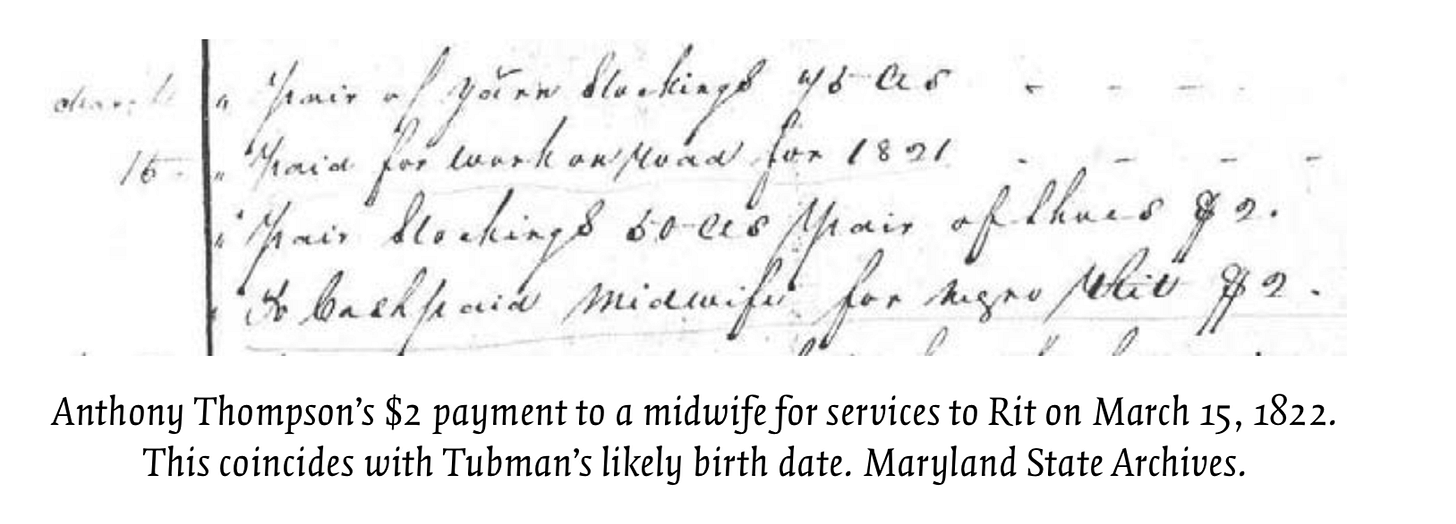 March " pair of yarn Stockings 75 Cts - - - -
15 " paid for work on Road for 1821 - - - -
" pair Stockings 50 Cts pair of Shoes $2.
" To Cash paid Midwife for negro Rit $2.
Anthony Thompson's $2 payment to a midwife for services to Rit on March 15, 1822.
This coincides with Tubman's likely birth date. Maryland State Archives.